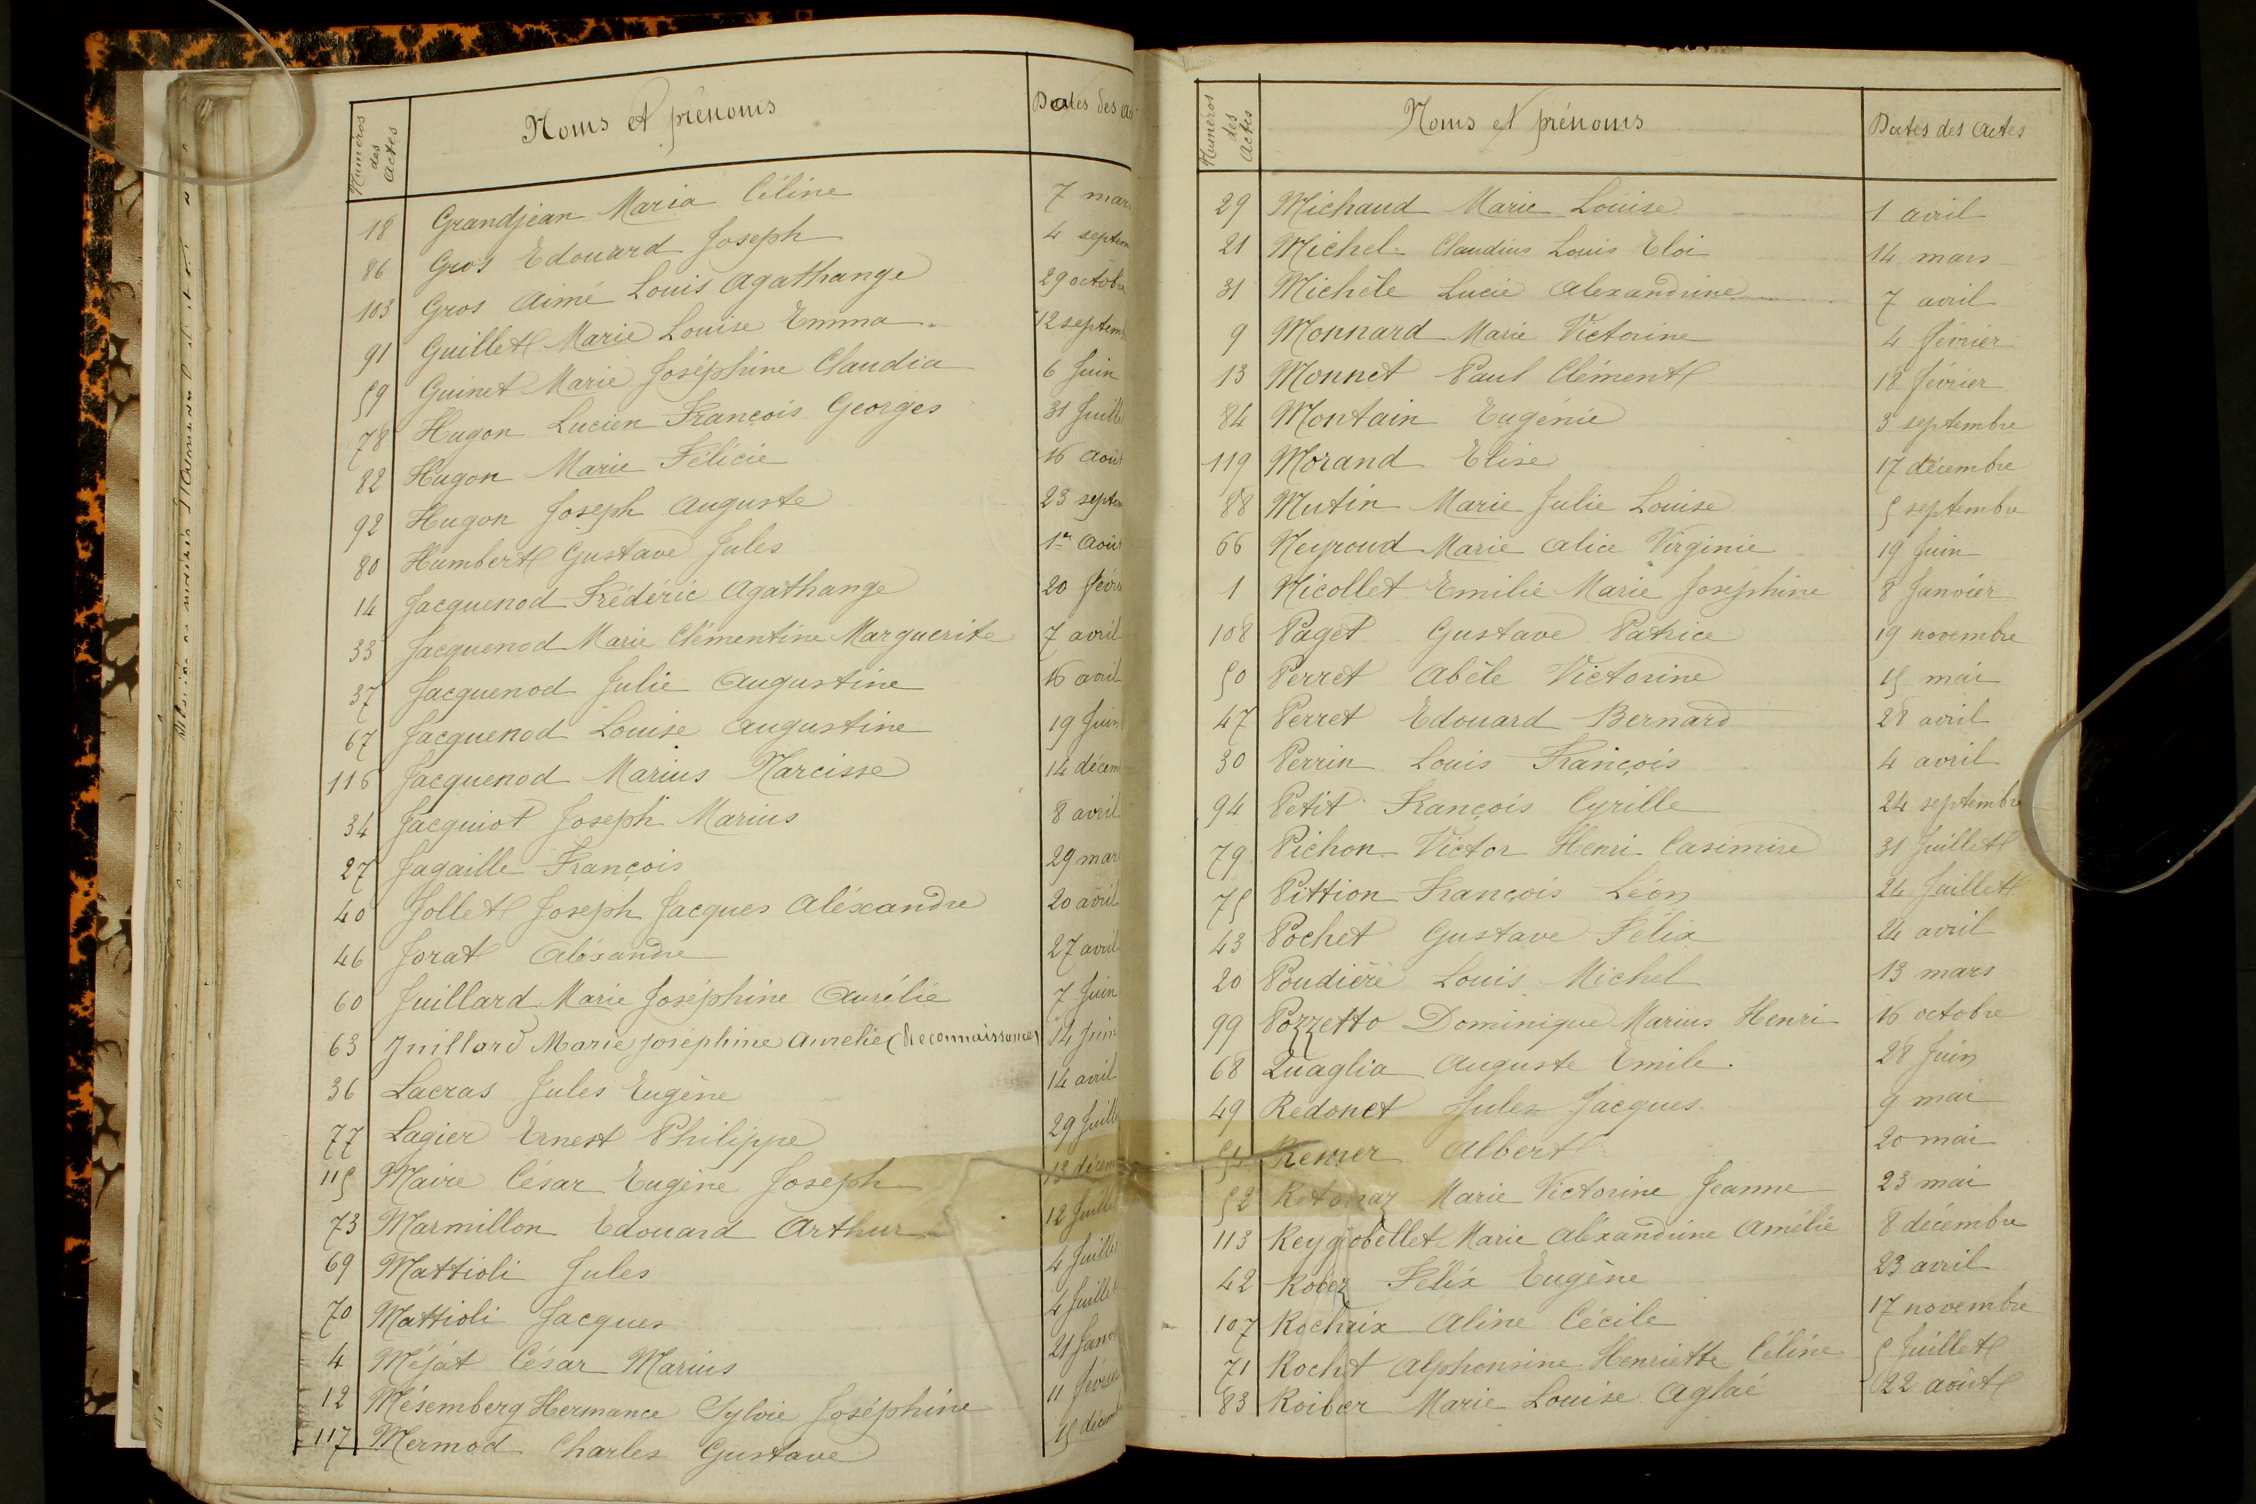 Numéros des Actes Noms et prénoms Dates des ac
18 Grandjean Maria Céline 7 mars
86 Gros Edouard Joseph 4 septem
103 Gros Aimé Louis Agathange 29 octobre
91 Guillet Marie Louise Emma 12 septemb
59 Guinet Marie Joséphine Claudia 6 Juin
78 Hugon Lucien François Georges 31 Juille
82 Hugon Marie Félicie 16 août
92 Hugon Joseph Auguste 23 septem
80 Humbert Gustave Jules 1er Août
14 Jacquenod Frédéric Agathange 20 févri
33 Jacquenod Marie Clémentine Marguerite 7 avril
37 Jacquenod Julie Augustine 16 avril
67 Jacquenod Louise Augustine 19 Juin
116 Jacquenod Marius Narcisse 14 décem
34 Jacquiot Joseph Marius 8 avril
27 Jagaille François 29 mar
40 Jollet Joseph Jacques Aléxandre 20 avril
46 Jorat Aléxandre 27 avril
60 Juillard Marie Joséphine Aurélie 7 Juin
63 Juillard Marie Joséphine Aurelie (Reconnaissance) 14 Juin
36 Lacras Jules Eugène 14 avril
77 Lagier Ernest Philippe 29 Juille
115 Maire César Eugène Joseph 13 décem
73 Marmillon Edouard Arthur 12 Juille
69 Mattioli Jules 4 Juille
70 Mattioli Jacques 4 Juillet
4 Méjat César Marius 21 Janv
12 Mésemberg Hermance Sylvie Joséphine 11 février
117 Mermod Charles Gustave 15 décemb
Numéros des Actes Noms et prénoms Dates des Actes
29 Michaud Marie Louise 1 avril
21 Michel Claudius Louis Eloi 14 mars
31 Michèle Lucie Alexandrine 7 avril
9 Monnard Marie Victorine 4 février
13 Monnet Paul Clément 18 février
84 Montain Eugénie 3 septembre
119 Morand Elise 17 décembre
88 Mutin Marie Julie Louise 5 septembre
66 Neyroud Marie Alice Virginie 19 Juin
1 Nicollet Emilie Marie Joséphine 8 Janvier
108 Paget Gustave Patrice 19 novembre
50 Perret Abèle Victorine 15 mai
47 Perret Edouard Bernard 28 avril
30 Perrin Louis François 4 avril
94 Petit François Cyrille 24 septembre
79 Pichon Victor Henri Casimire 31 Juillet
75 Pittion François Léon 24 Juillet
43 Pochet Gustave Félix 24 avril
20 Poudière Louis Michel 13 mars
99 Pozzetto Dominique Marius Henri 16 octobre
68 Quaglia Auguste Emile. 28 Juin
49 Redonet Jules Jacques 9 mai
51 Albert 20 mai
52 Marie Victorine Jeanne 23 mai
113 Reygrobellet Marie Aléxandrine Amélie 8 décembre
42 Félix Eugène 23 avril
107 Rochaix Aline Cécile 17 novembre
71 Rochet Alphonsine Henriette Céline 5 Juillet
83 Marie Louise Aglaé 22 août